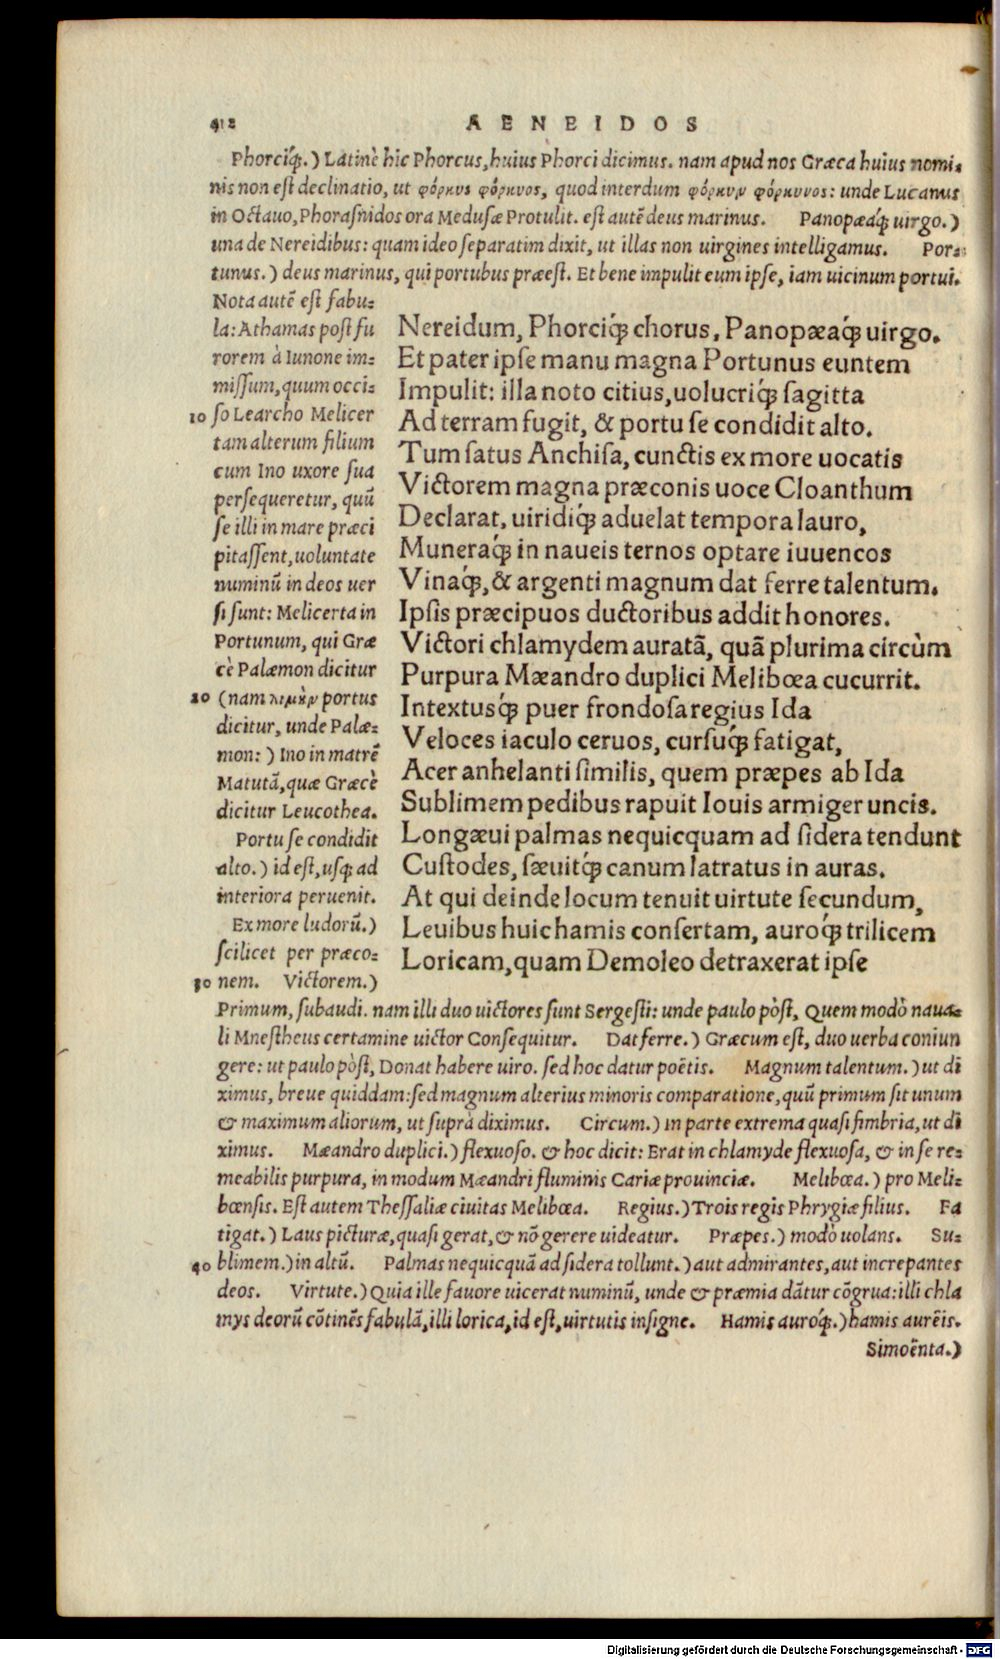 412 AENEIDOS
Phorciq́;.) Latinè hic Phorcus, huius Phorci dicimus. nam apud nos Græca huius nomi-
nis non est declinatio, ut φόρκυς φόρκυος, quod interdum φόρκυν φόρκυνος: unde Lucanus
in Octauo, Phorasnidos ora Medusæ Protulit. est autẽ deus marinus. Panopæaq́; uirgo.)
una de Nereidibus: quam ideo separatim dixit, ut illas non uirgines intelligamus. Por-
tunus.) deus marinus, qui portubus præest. Et bene impulit eum ipse, iam uicinum portui.
Nota autẽ est fabu-
la: Athamas post fu
rorem à Iunone im-
missum, quum occi-
10 so Learcho Melicer
tam alterum filium
cum Ino uxore sua
persequeretur, quũ
se illi in mare præci
pitassent, uoluntate
numinũ in deos uer
si sunt: Melicerta in
Portunum, qui Græ
cè Palæmon dicitur
20 (nam λιμὴν portus
dicitur, unde Palæ-
mon:) Ino in matrẽ
Matutã, quæ Græcè
dicitur Leucothea.
Portu se condidit
alto.) id est, usq; ad
interiora peruenit.
Ex more ludorũ.)
scilicet per præco-
30 nem. Victorem.)
Nereidum, Phorciq́; chorus, Panopæaq́; uirgo.
Et pater ipse manu magna Portunus euntem
Impulit: illa noto citius, uolucriq́; sagitta
Ad terram fugit, & portu se condidit alto.
Tum satus Anchisa, cunctis ex more uocatis
Victorem magna præconis uoce Cloanthum
Declarat, uiridiq́; aduelat tempora lauro,
Muneraq́; in naueis ternos optare iuuencos
Vinaq́;, & argenti magnum dat ferre talentum.
Ipsis præcipuos ductoribus addit honores.
Victori chlamydem auratã, quã plurima circùm
Purpura Mæandro duplici Melibœa cucurrit.
Intextusq́; puer frondosa regius Ida
Veloces iaculo ceruos, cursuq́; fatigat,
Acer anhelanti similis, quem præpes ab Ida
Sublimem pedibus rapuit Iouis armiger uncis.
Longæui palmas nequicquam ad sidera tendunt
Custodes, sæuitq́; canum latratus in auras.
At qui deinde locum tenuit uirtute secundum,
Leuibus huic hamis consertam, auroq́; trilicem
Loricam, quam Demoleo detraxerat ipse
Primum, subaudi. nam illi duo uictores sunt Sergesti: unde paulo pòst, Quem modò naua-
li Mnestheus certamine uictor Consequitur. Dat ferre.) Græcum est, duo uerba coniun
gere: ut paulo pòst, Donat habere uiro. sed hoc datur poëtis. Magnum talentum.) ut di
ximus, breue quiddam: sed magnum alterius minoris comparatione, quũ primum sit unum
& maximum aliorum, ut suprà diximus. Circum.) in parte extrema quasi fimbria, ut di
ximus. Mæandro duplici.) flexuoso. & hoc dicit: Erat in chlamyde flexuosa, & in se re-
meabilis purpura, in modum Mæandri fluminis Cariæ prouinciæ. Melibœa.) pro Meli-
bœnsis. Est autem Thessaliæ ciuitas Melibœa. Regius.) Trois regis Phrygiæ filius. Fa
tigat.) Laus picturæ, quasi gerat, & nõ gerere uideatur. Præpes.) modò uolans. Su-
40 blimem.) in altũ. Palmas nequicquã ad sidera tollunt.) aut admirantes, aut increpantes
deos. Virtute.) Quia ille fauore uicerat numinũ, unde & præmia dãtur cõgrua: illi chla
mys deorũ cõtinẽs fabulã, illi lorica, id est, uirtutis insigne. Hamis auróq́;.) hamis aurẽis.
Simoënta.)
Digitalisierung gefördert durch die Deutsche Forschungsgemeinschaft - DFG